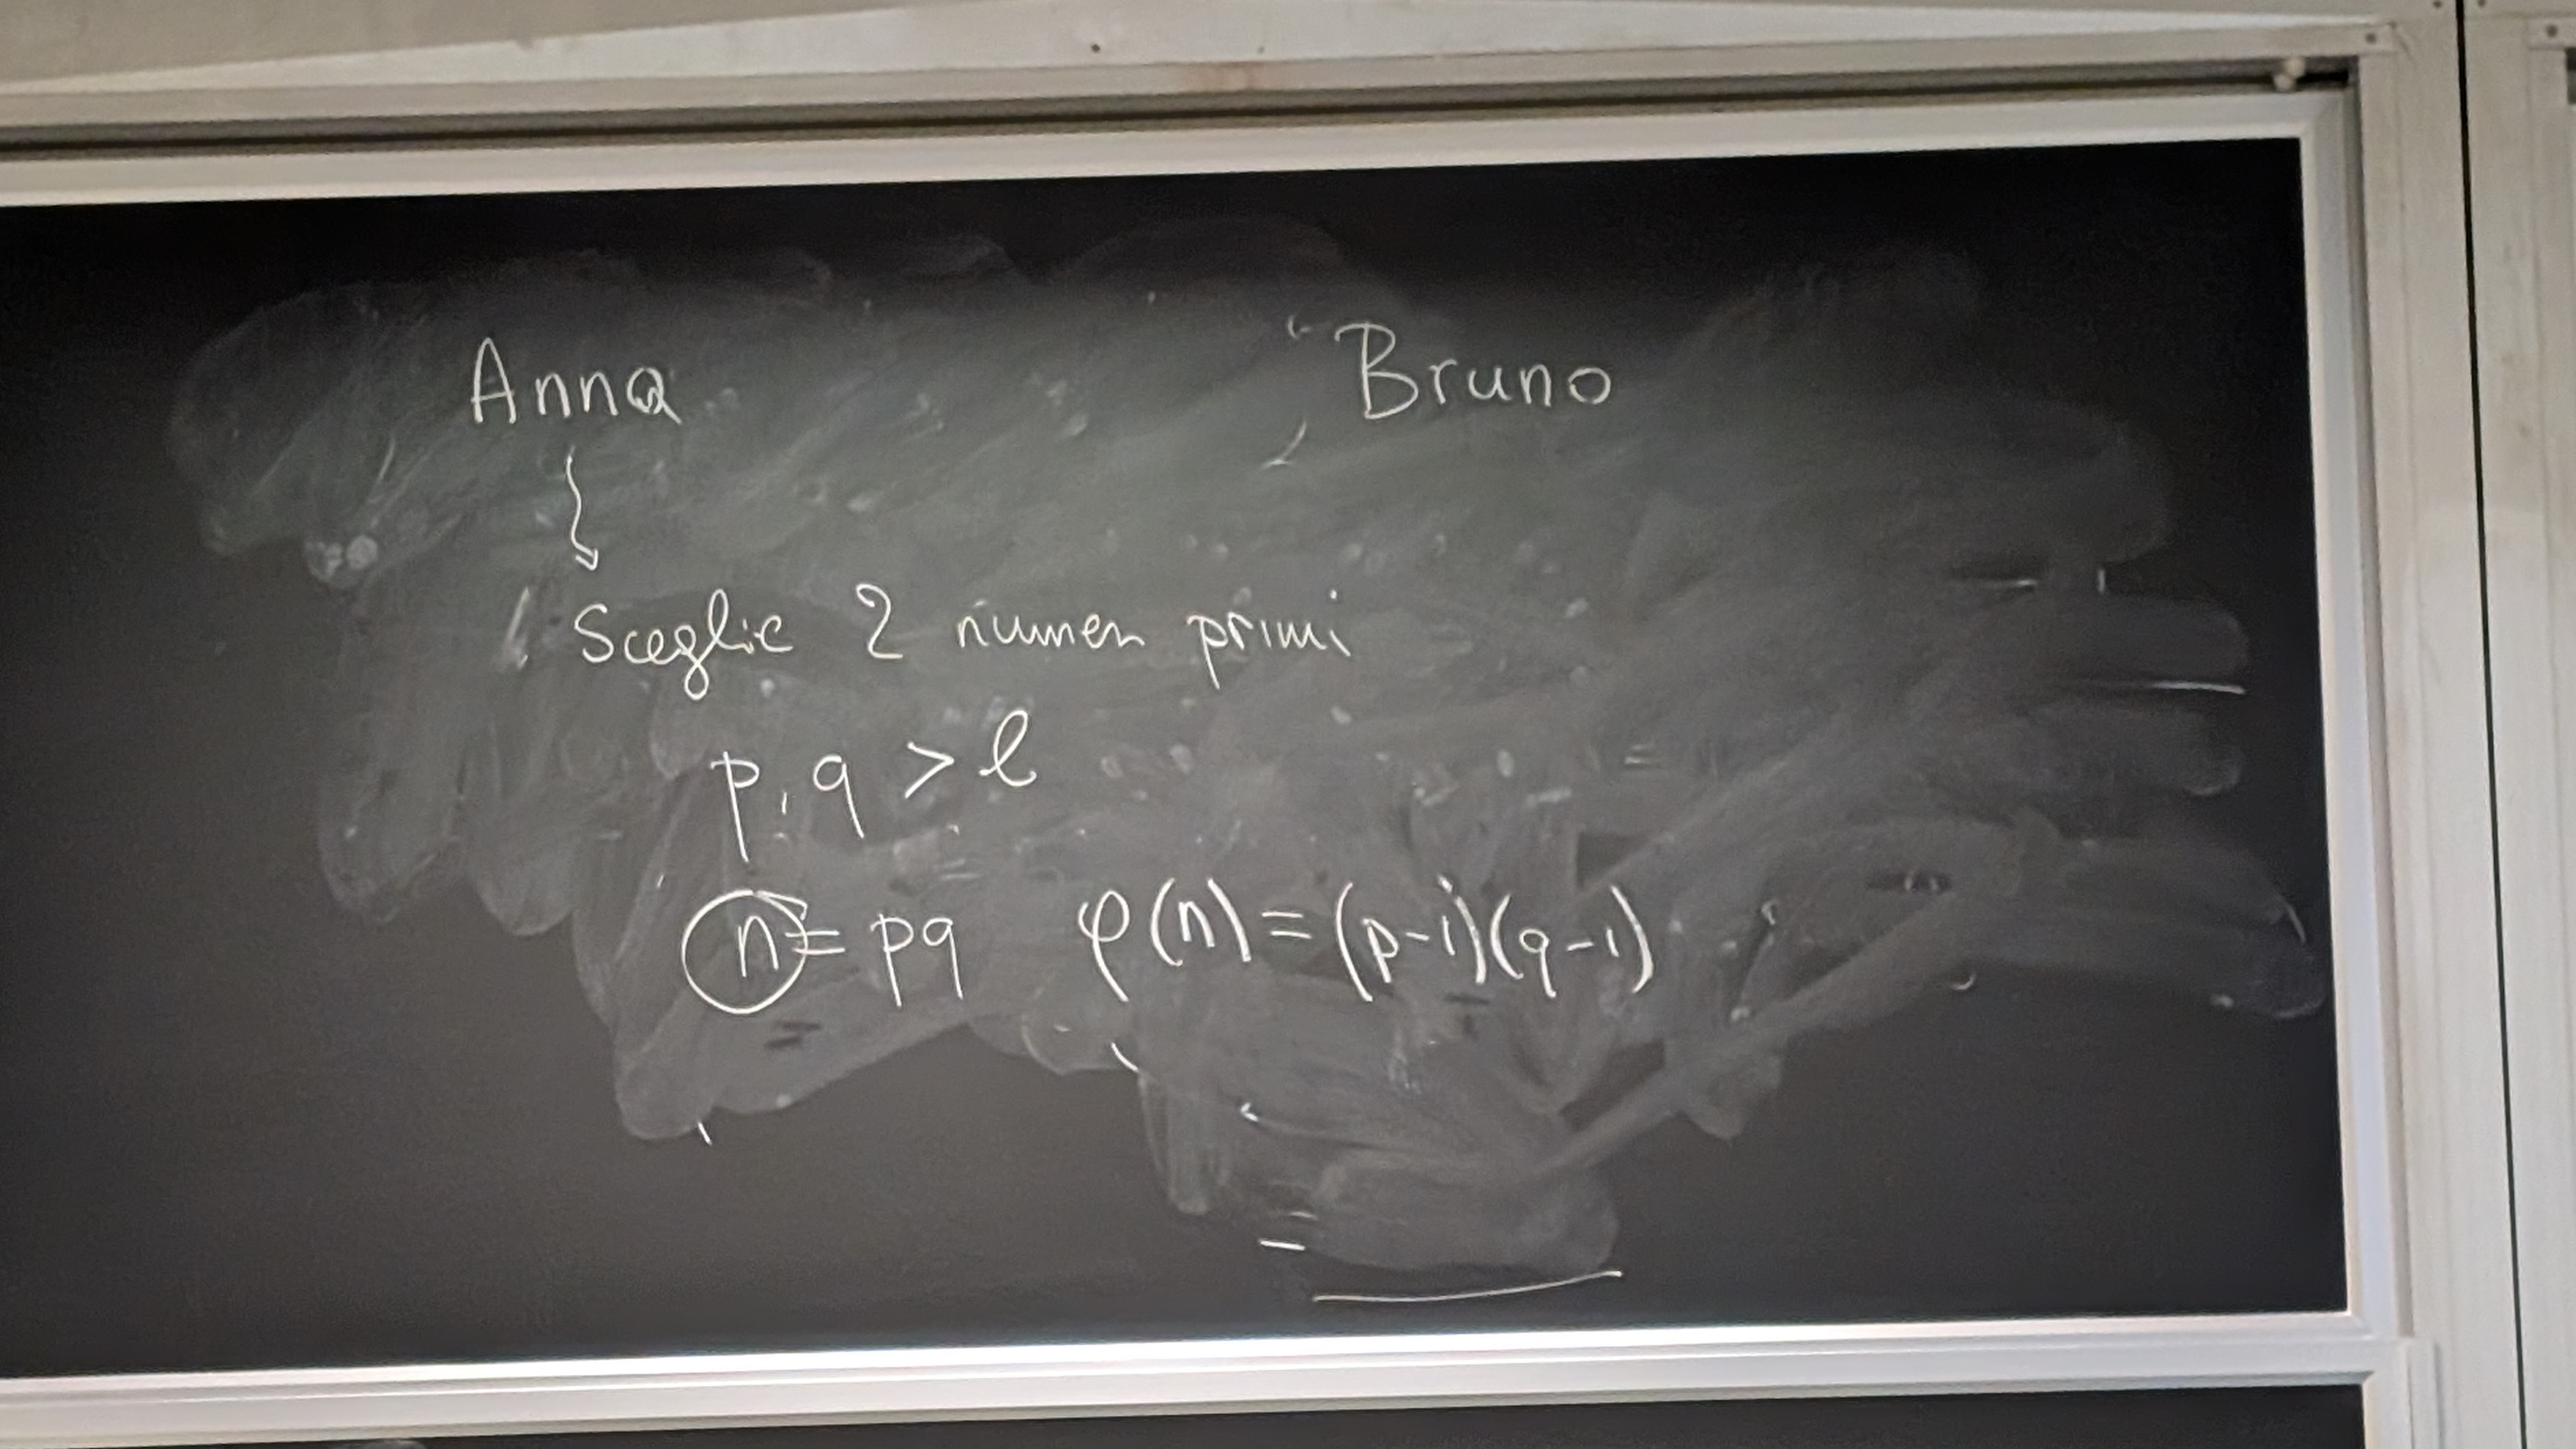 Anna Bruno
Sceglie 2 numeri primi
p, q > l
n = pq φ(n) = (p-1)(q-1)